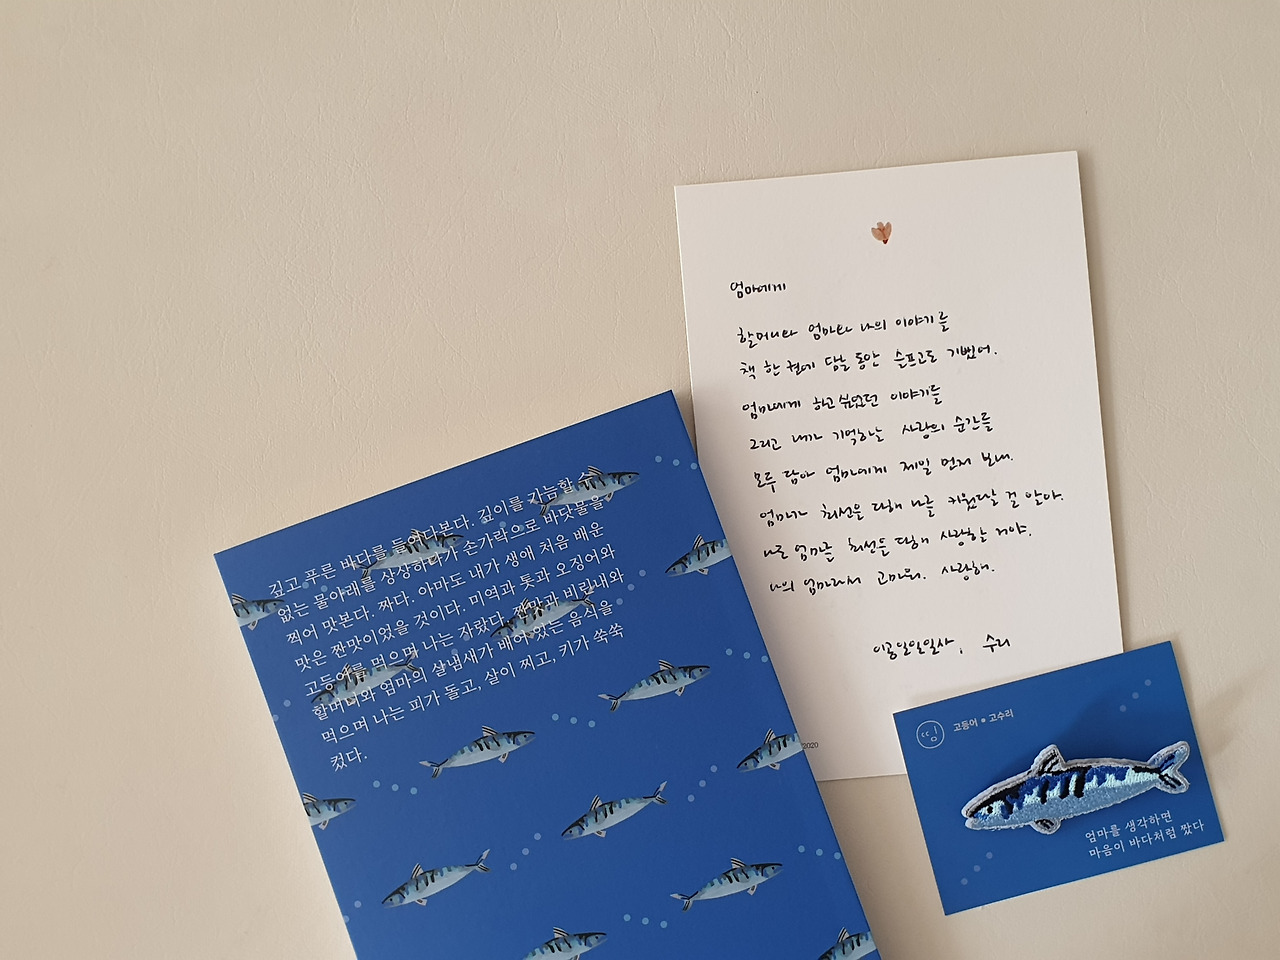 깊고 푸른 바다를 들여다본다. 깊이를 가늠할 수
없는 물아래를 상상하다가 손가락으로 바닷물을
찍어 맛본다. 짜다. 아마도 내가 생애 처음 배운
맛은 짠맛이었을 것이다. 미역과 톳과 오징어와
고등어를 먹으며 나는 자랐다. 짠맛과 비린내와
할머니와 엄마의 살냄새가 배어 있는 음식을
먹으며 나는 피가 돌고, 살이 찌고, 키가 쑥쑥
컸다.
엄마에게
할머니와 엄마와 나의 이야기를
책 한 권에 담는 동안 슬프고도 기뻤어.
엄마에게 하고 싶었던 이야기를
그리고 내가 기억하는 사랑의 순간을
모두 담아 엄마에게 제일 먼저 보내.
엄마가 최선을 다해 나를 키웠다는 걸 알아.
나도 엄마를 최선을 다해 사랑할 거야.
나의 엄마라서 고마워. 사랑해.
이공일일일사, 수리
2020
고등어 ● 고수리
엄마를 생각하면
마음이 바다처럼 짰다